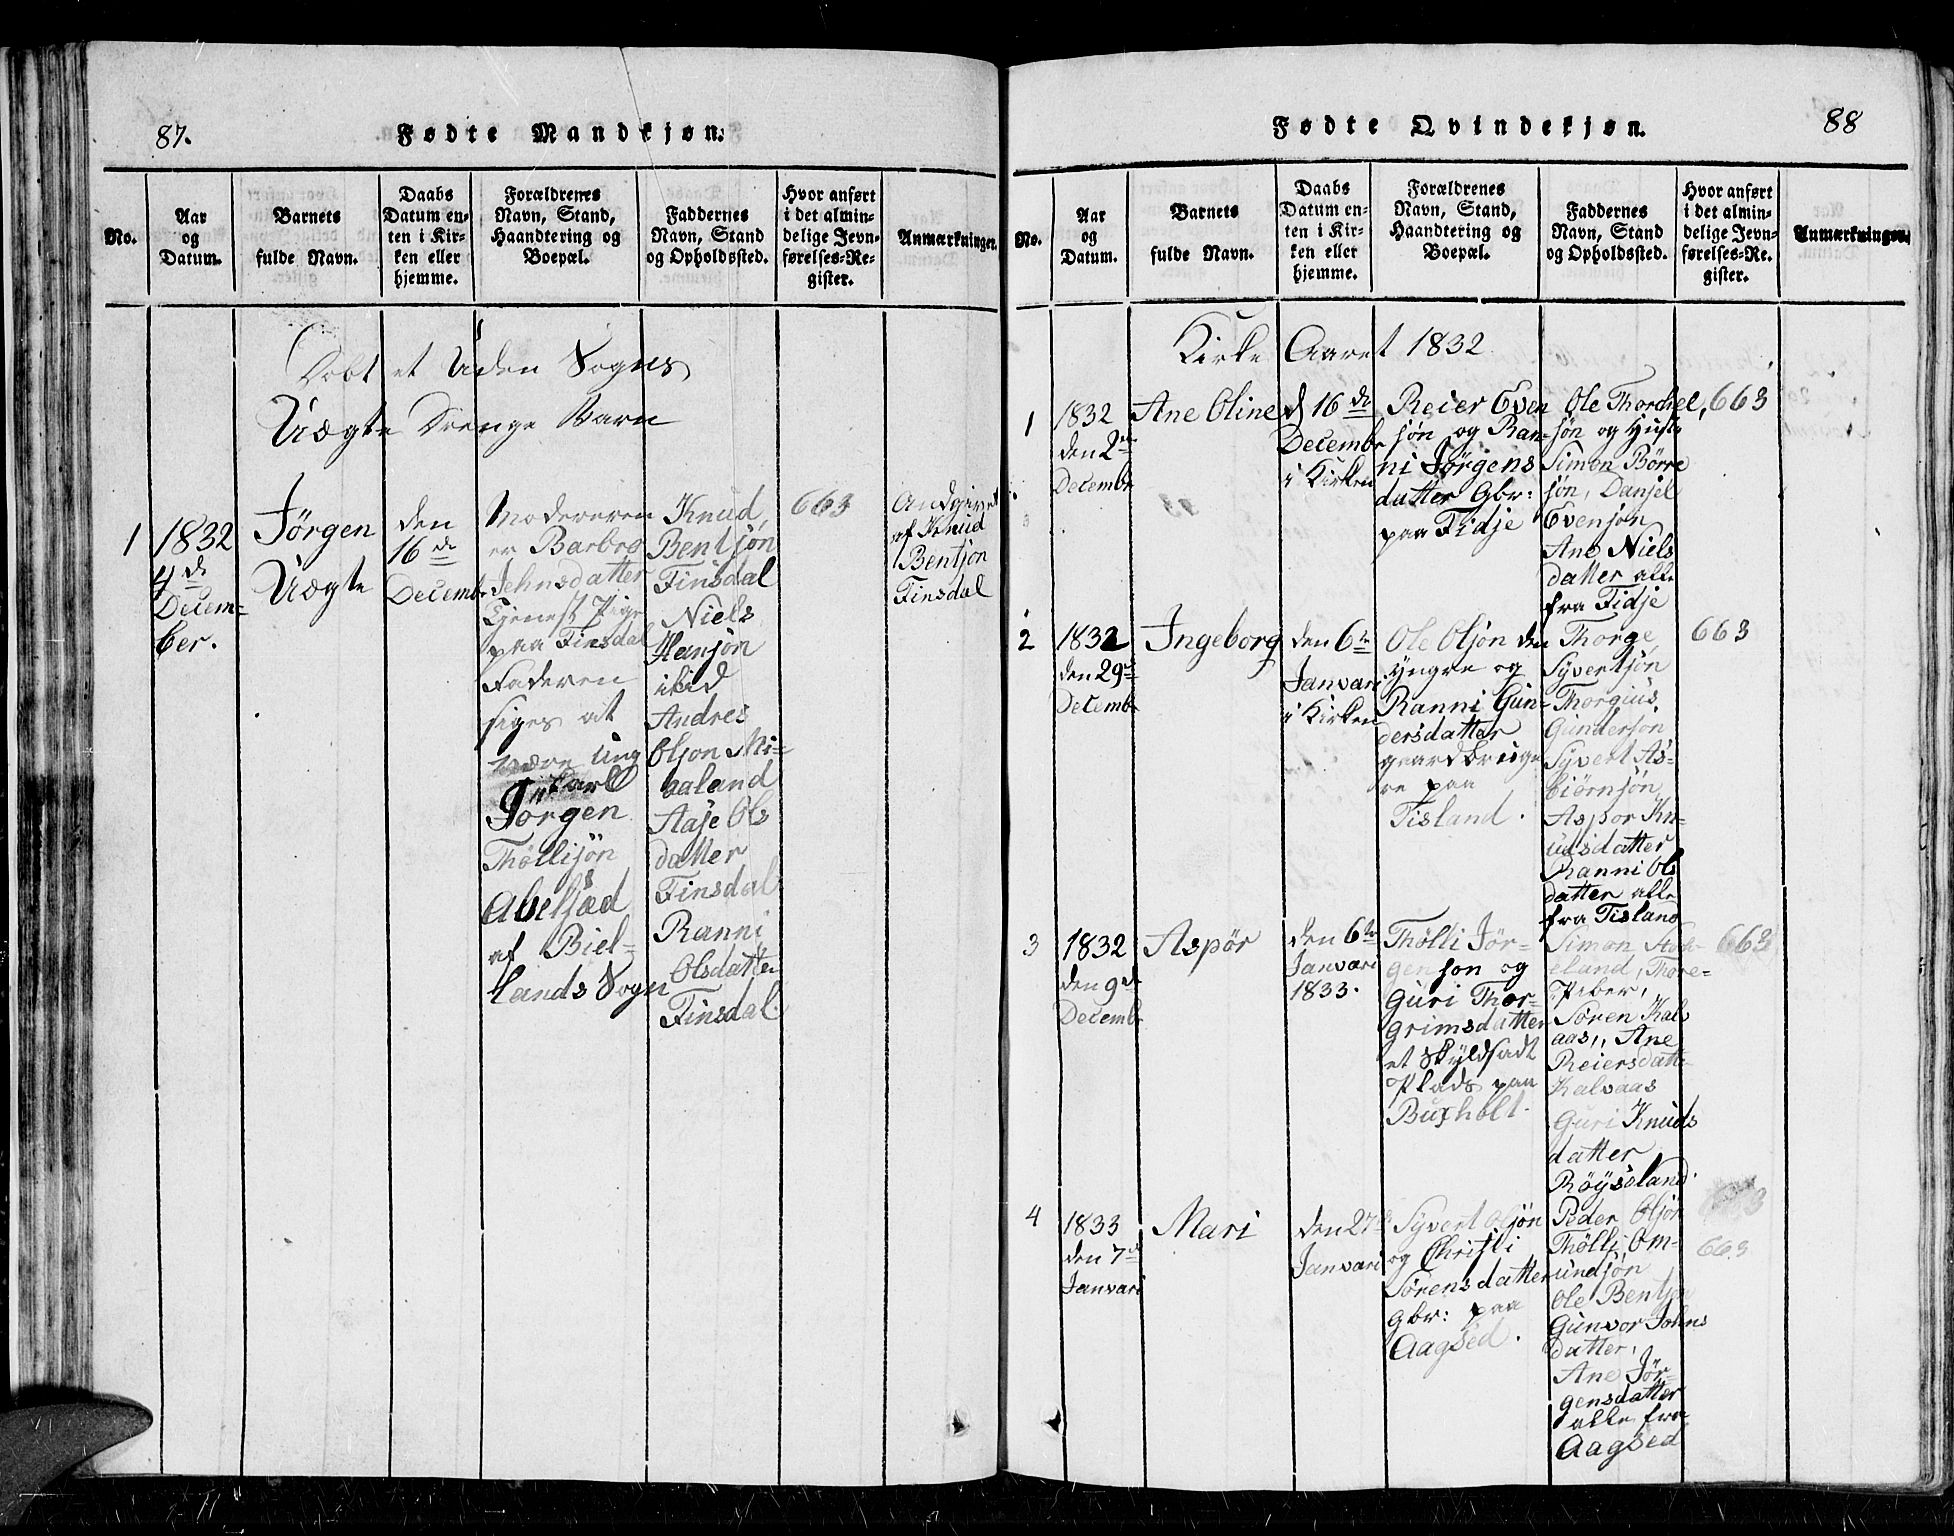 87.
Fødte Mandkjøn.
No.
Aar
og
Datum.
Barnets
fulde Navn.
Daabs
Datum en-
ten i Kir-
ken eller
hjemme.
Forældrenes
Navn, Stand,
Haandtering og
Boepæl.
Faddernes
Navn, Stand
og Opholdssted.
Hvor anført
i det almin-
delige Jevn-
førelses-Re-
gister.
Anmærkninger.
Dobt et Uden Sogns
Uægte Drenge Barn
1
1832
4de
Decem-
ber.
Jörgen
Uægte
den
16de
Decembr
Moderen
er Barbro
Jehnsdatter
Tjenest Pige
paa Finsdal
Faderen
siges at
være Ung
Karl
Jörgen
Thöllisjön
Abelsæd
af Biel-
lands Sogn
Knud
Bentsjön
Finsdal
Niels
Hansjön
ibid
Andres
Olsjon Mi-
aaland
Aaje Ols
datter
Finsdal
Ranni
Olsdatter
Finsdal.
663
Andgivet
af Knud
Bentsjon
Finsdal
88
Fødte Qvindekjøn.
No.
Aar
og
Datum.
Barnets
fulde Navn.
Daabs
Datum en-
ten i Kir-
ken eller
hjemme.
Forældrenes
Navn, Stand,
Haandtering og
Boepæl.
Faddernes
Navn, Stand
og Opholdssted.
Hvor anført
i det almin-
delige Jevn-
førelses-Re-
gister.
Anmærkninger.
Kirke Aaret 1832
1
1832
den 2den
Decembr
Ane Oline
d 16de
Decembr
i Kirken
Reier Even
sjøn og Ran-
ni Jörgens
datter Gbr:
paa Fidje
Ole Thorkel,
sjøn og Hust
Simon Börre
sjön, Danjel
Evensjon
Ane Niels
datter alle
fra Fidje
663
2
1832
den 29de
Decembr
Ingeborg
den 6te
Janvari
i Kirken
Ole Olsjön den
yngre og
Ranni Gun-
dersdatter
gaardbruge
re paa
Tisland.
Thorge
Syvertsjön
Thorgius
Gundersøn
Syvert As-
biörnsjön
Aspor Kn-
udsdatter
Ranni Ols
datter alle
fra Tisland
663
3
1832
den 9de
Decembr
Aspör
den 6te
Janvari
1833.
Thölli Jör-
genson og
Guri Thor-
grimsdatter
et Skyldsadt
Plads paa
Buxholt.
Simon
eland, Thore
Piber,
Sören Kal
aas, Ane
Reiersdatt
Kalvaas
Guri Knuds
datter
Röÿseland
663
4
1833
den 7de
Janvari
Mari
den 27de
Janvari
Syvert Olsjön
og Christi
Sörensdatter
Gbr: paa
Aagsed.
Peder Olsjon
Thölli Om-
undsjön
Ole Bentsjon
Gunvor Johns
datter,
Ane Jör-
gensdatter
alle fra
Aagsed
663